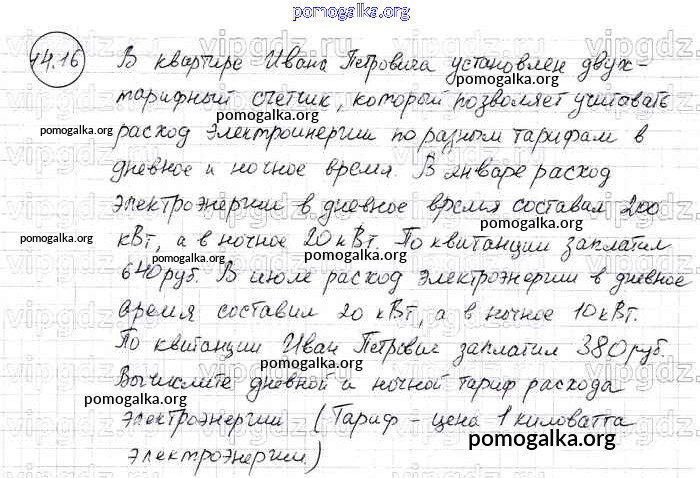 pomogalka.org
14.16 В квартире Ивана Петровича установлен двух-
pomogalka.org
тарифный счетчик, который позволяет учитавать
pomogalka.org
расход электроинергии по разным тарифам в
pomogalka.org
дневное и ночное время. В январе расход
pomogalka.org
электроэнергии в дневное время составил 200
pomogalka.org
кВт, а в ночное 20 кВт. По квитанции заплатил
640 руб. В июле расход электроэнергии в дневное
pomogalka.org
время составил 20 кВт, а в ночное 10 кВт.
По квитанции Иван Петрович заплатил 380 руб.
pomogalka.org
Вычислите дневной и ночной тариф расхода
pomogalka.org
электроэнергии (Тариф - цена 1 киловатта
pomogalka.org
электроэнергии.)